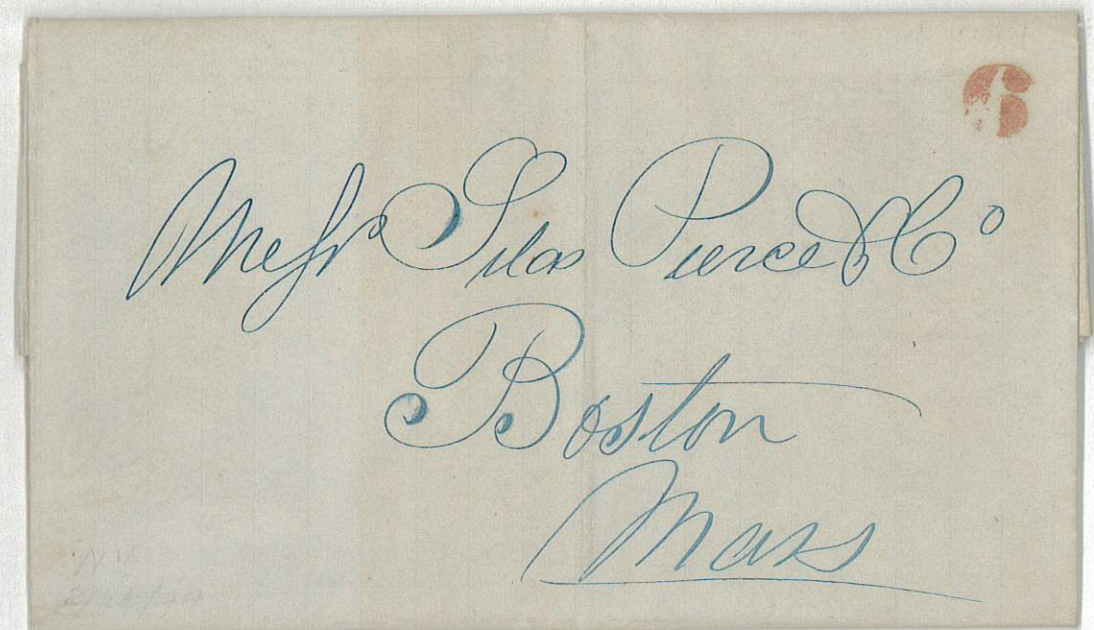 6
Messrs Silas Pierce & Co
Boston
Mass